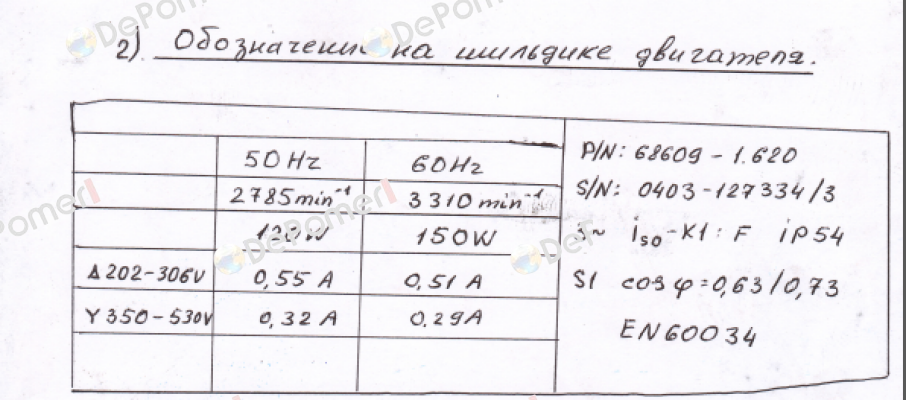 2) Обозначение на шильдике двигателя.
50Hz 60Hz
2785min⁻¹ 3310min⁻¹
120W 150W
Δ202-306V 0,55A 0,51A
Y350-530V 0,32A 0.29A
P/N: 68609-1.620
S/N: 0403-127334/3
3~ iso-Kl: F iP54
S1 cosφ=0,63/0,73
EN60034
DePomerI